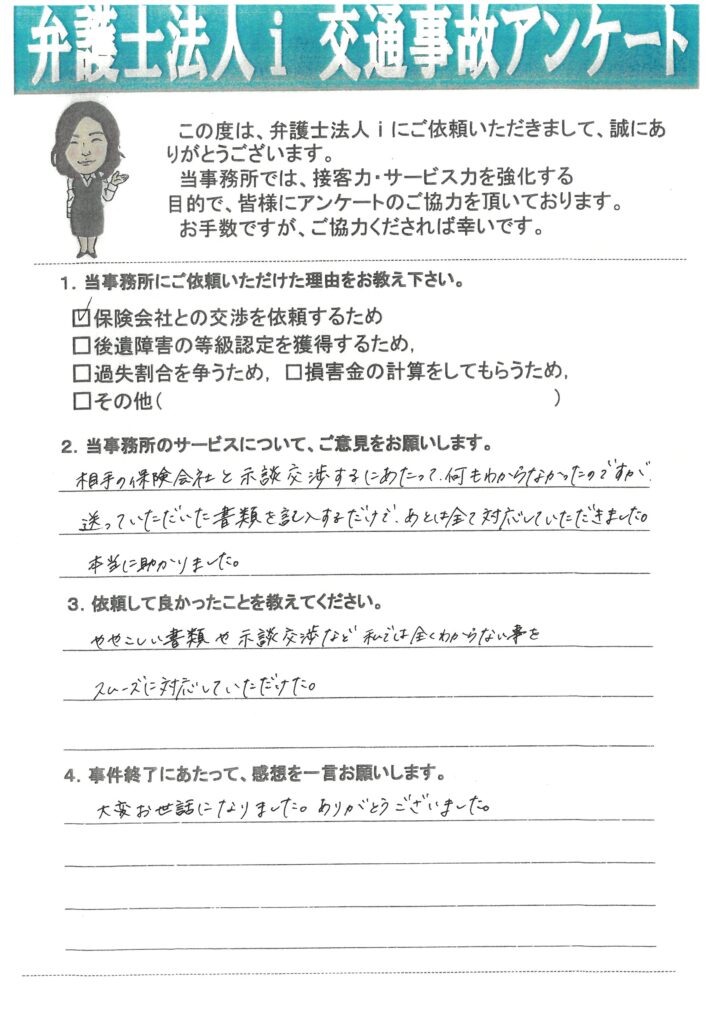 弁護士法人ｉ 交通事故アンケート
この度は、弁護士法人ｉにご依頼いただきまして、誠にあ
りがとうございます。
当事務所では、接客力・サービス力を強化する
目的で、皆様にアンケートのご協力を頂いております。
お手数ですが、ご協力くだされば幸いです。
1．当事務所にご依頼いただけた理由をお教え下さい。
☑保険会社との交渉を依頼するため
□後遺障害の等級認定を獲得するため,
□過失割合を争うため, □損害金の計算をしてもらうため,
□その他( )
2．当事務所のサービスについて、ご意見をお願いします。
相手の保険会社と示談交渉するにあたって、何もわからなかったのですが、
送っていただいた書類を記入するだけで、あとは全て対応していただきました。
本当に助かりました。
3．依頼して良かったことを教えてください。
ややこしい書類や示談交渉など私では全くわからない事を
スムーズに対応していただけた。
4．事件終了にあたって、感想を一言お願いします。
大変お世話になりました。ありがとうございました。